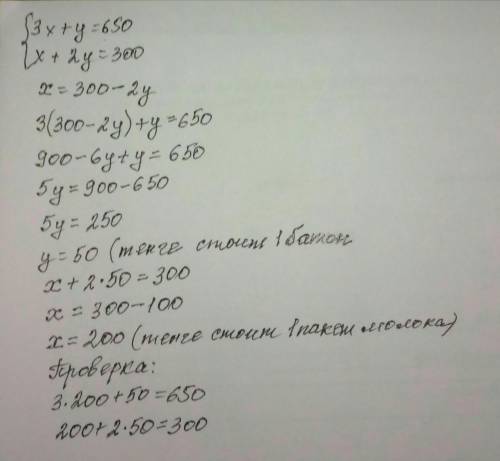 {3x+y=650
x+2y=300
x=300-2y
3(300-2y)+y=650
900-6y+y=650
5y=900-650
5y=250
y=50 (тенге стоит 1 батон
x+2·50=300
x=300-100
x=200 (тенге стоит 1 пакет молока)
Проверка:
3·200+50=650
200+2·50=300